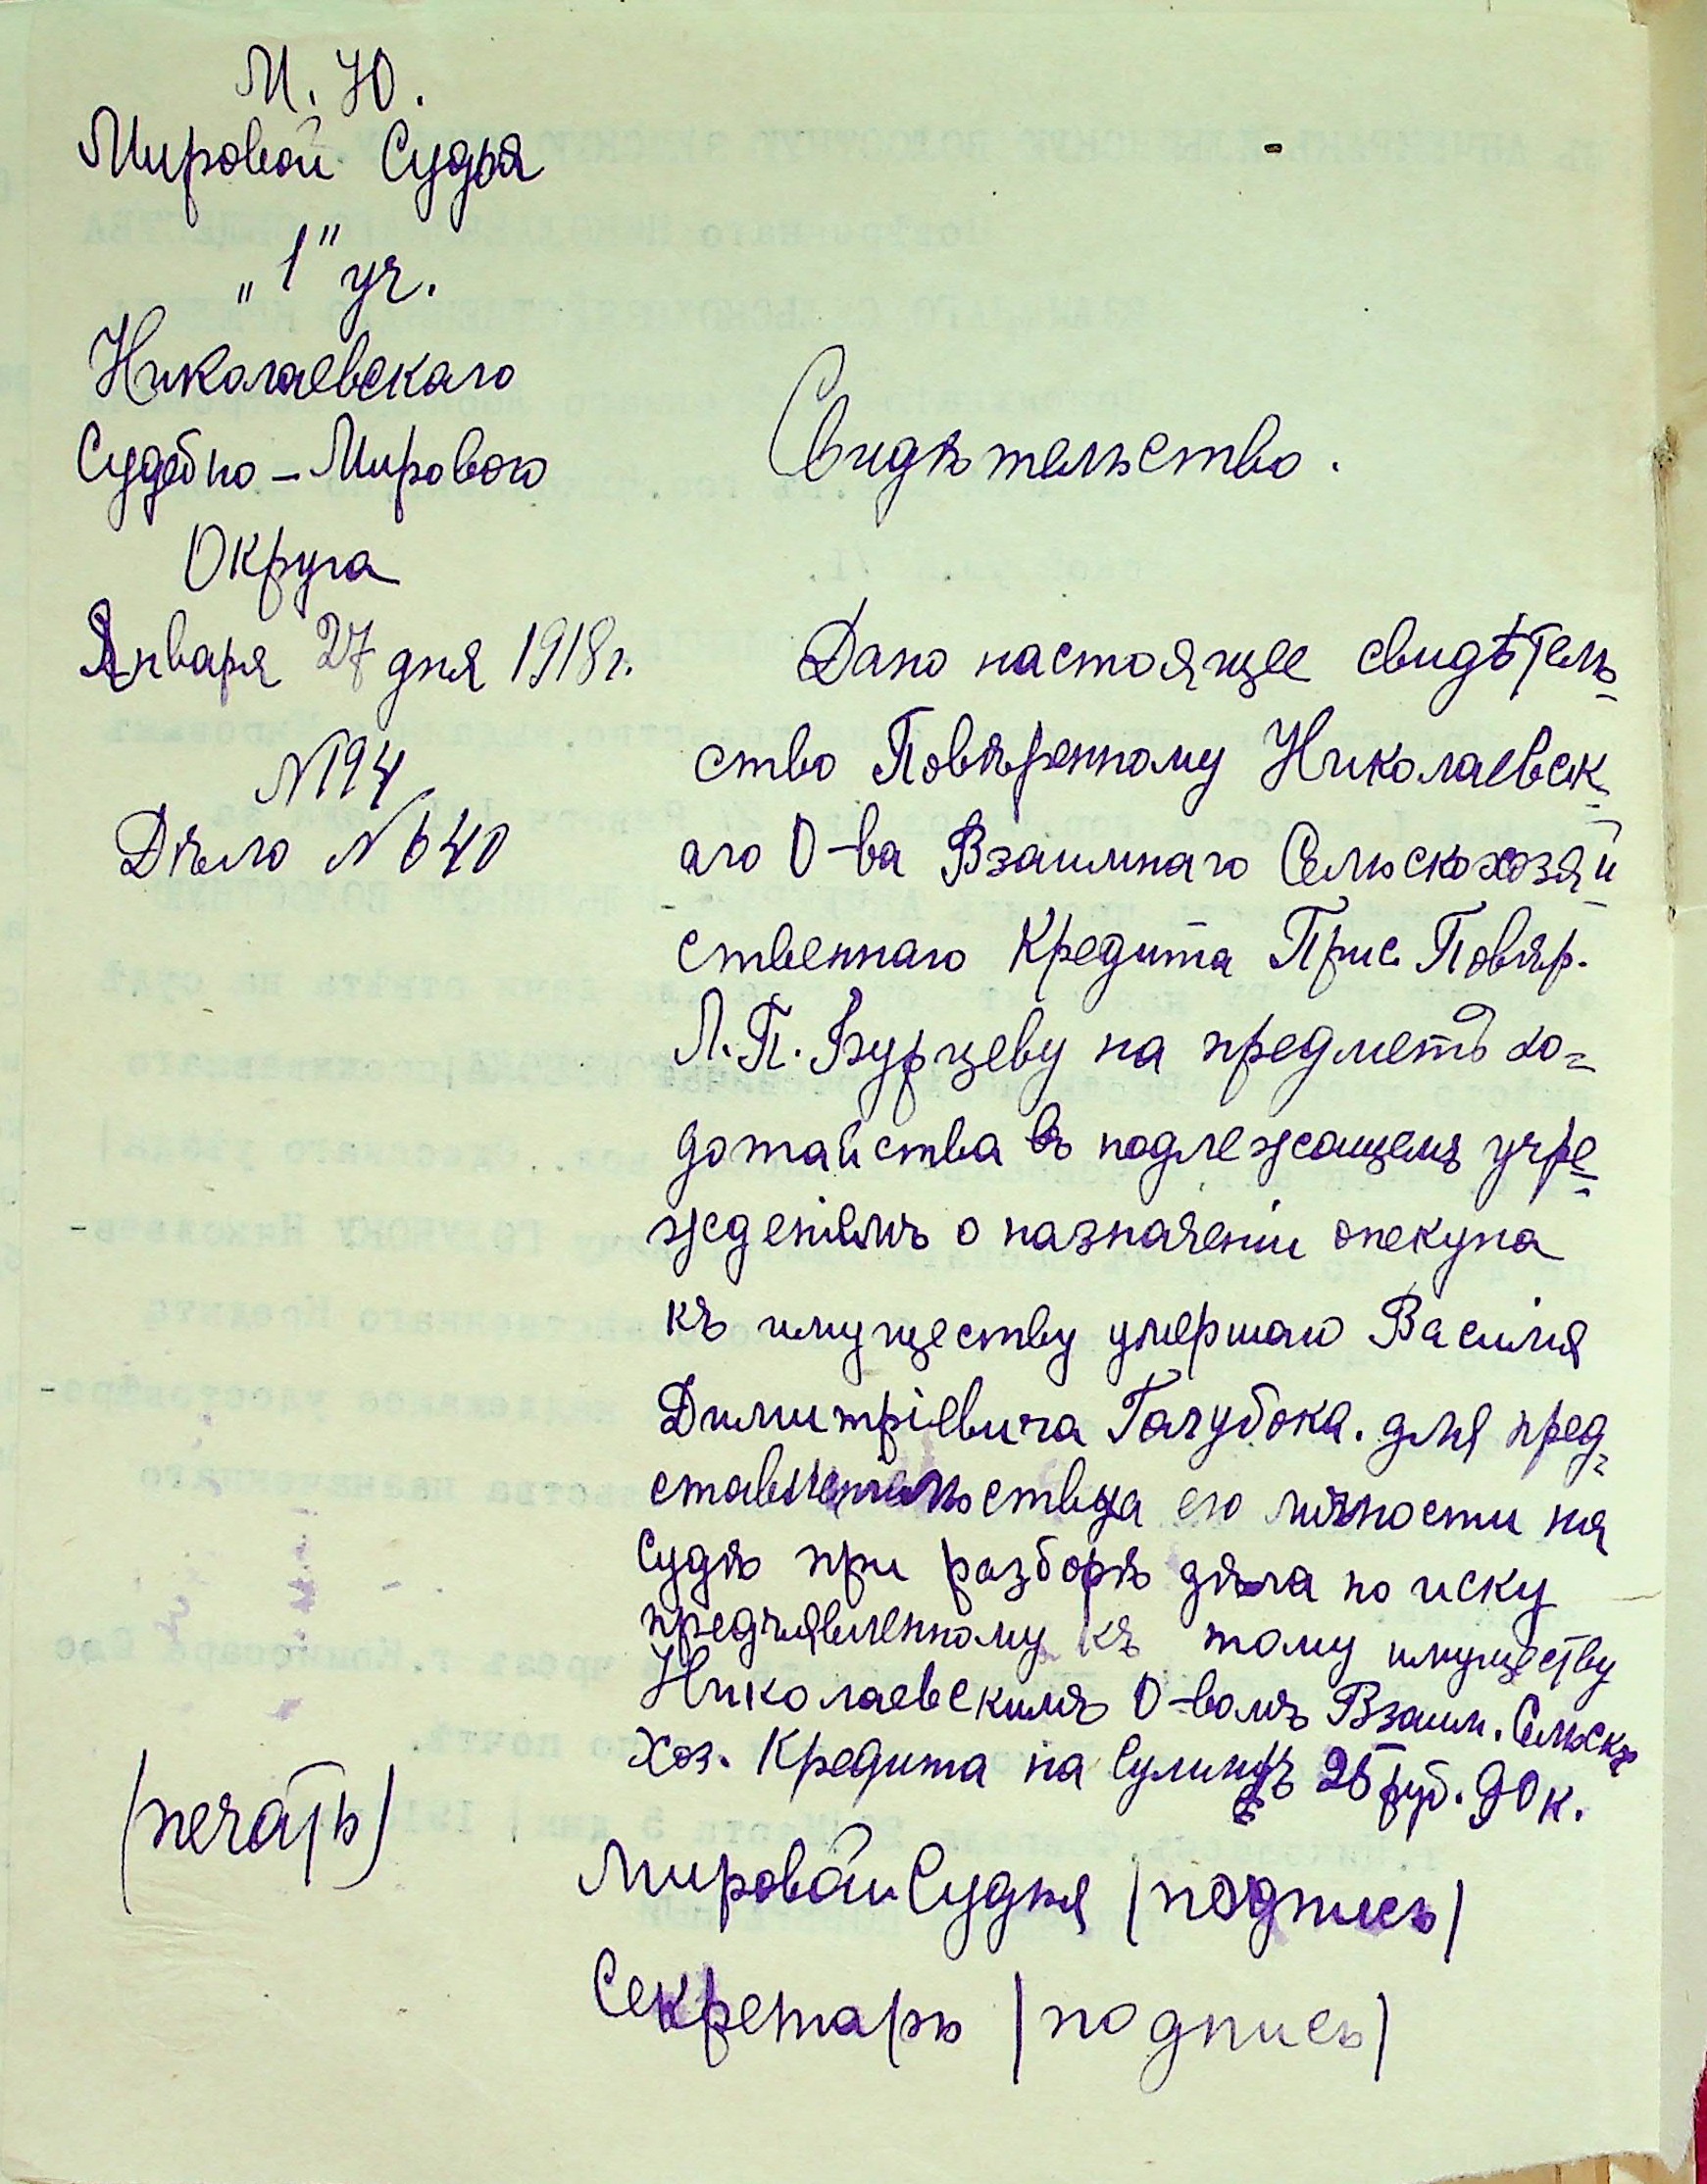 М. Ю.
Мировой Судья
„1" уч.
Николаевскаго
Судебно-Мирового
Округа
Января 27 дня 1918 г.
№194
Дѣло №640
Свидѣтельство.
Дано настоящее свидѣтель-
ство Повѣренному Николаевск-
аго О-ва Взаимнаго Сельскохозяй-
ственнаго Кредита Прис. Повѣр.
Л. П. Бурцеву на предметъ хо-
датайства въ подлежащемъ учре-
жденіямъ о назначеніи опекуна
къ имуществу умершаго Василія
Димитріевича Галубока. для пред-
ставительства его личности на
Судѣ при разборѣ дѣла по иску
предъявленному къ тому имуществу
Николаевскимъ О-вомъ Взаим. Сельск
Хоз. Кредита на Сумму 25 руб. 90 к.
(печать)
Мировой Судья /подпись/
Секретарь /подпись/